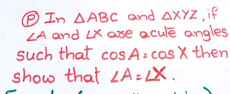 Ⓟ In △ABC and △XYZ, if
∠A and ∠X are acute angles
such that cos A = cos X then
show that ∠A = ∠X.